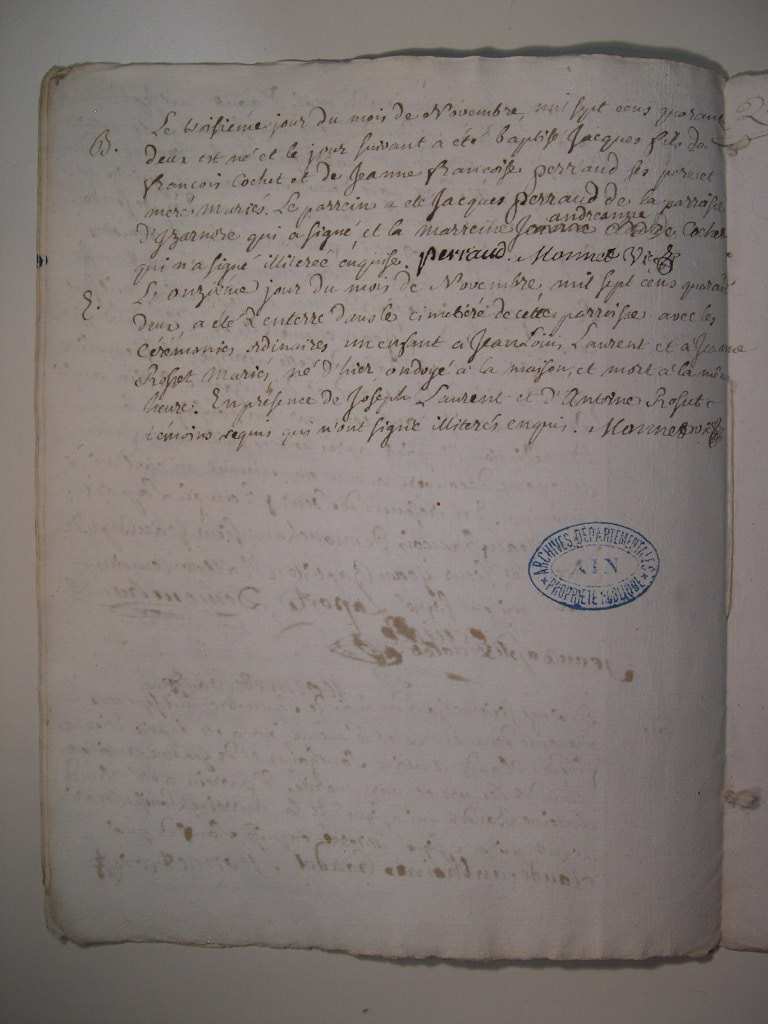 B. Le troisieme jour du mois de Novembre, mil sept cens quarant
deux est né et le jour suivant a été baptisé Jacques fils de
françois Cochet et de Jeanne françoise perraud ses pere et
mere mariés. Le parrein a été Jacques perraud de la parroisse
andreanne
D'Izarnore qui a signé et la marreine Cochet
qui n'a signé illiteréé enquise. perraud. Monnet Vic.
E. Le onzieme jour du mois de Novembre, mil sept cens quarant
deux, a été enterré dans le cimetiére de cette parroisse avec les
cérémonies ordinaires, un enfant a Jean Louis Laurent et a Jeanne
Rosset Mariés, né d'hier, ondoyé a la maison, et mort a la mê
heure. En présence de Joseph Laurent et d'Antoine Rosset
témoins requis qui n'ont signé illiterés enquis. Monnet vic.
ARCHIVES DEPARTEMENTALES
AIN
PROPRIETE PUBLIQUE